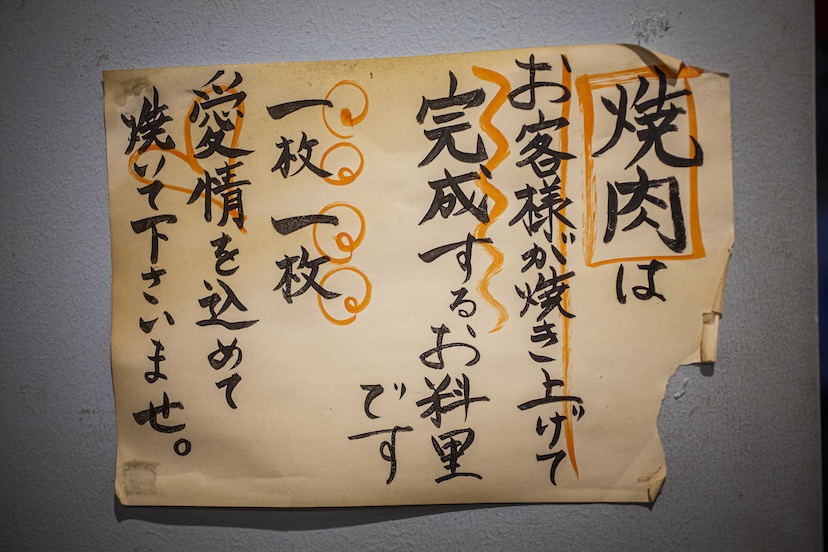 焼肉は
お客様が焼き上げて
完成するお料里
です
一枚一枚
愛情を込めて
焼いて下さいませ。